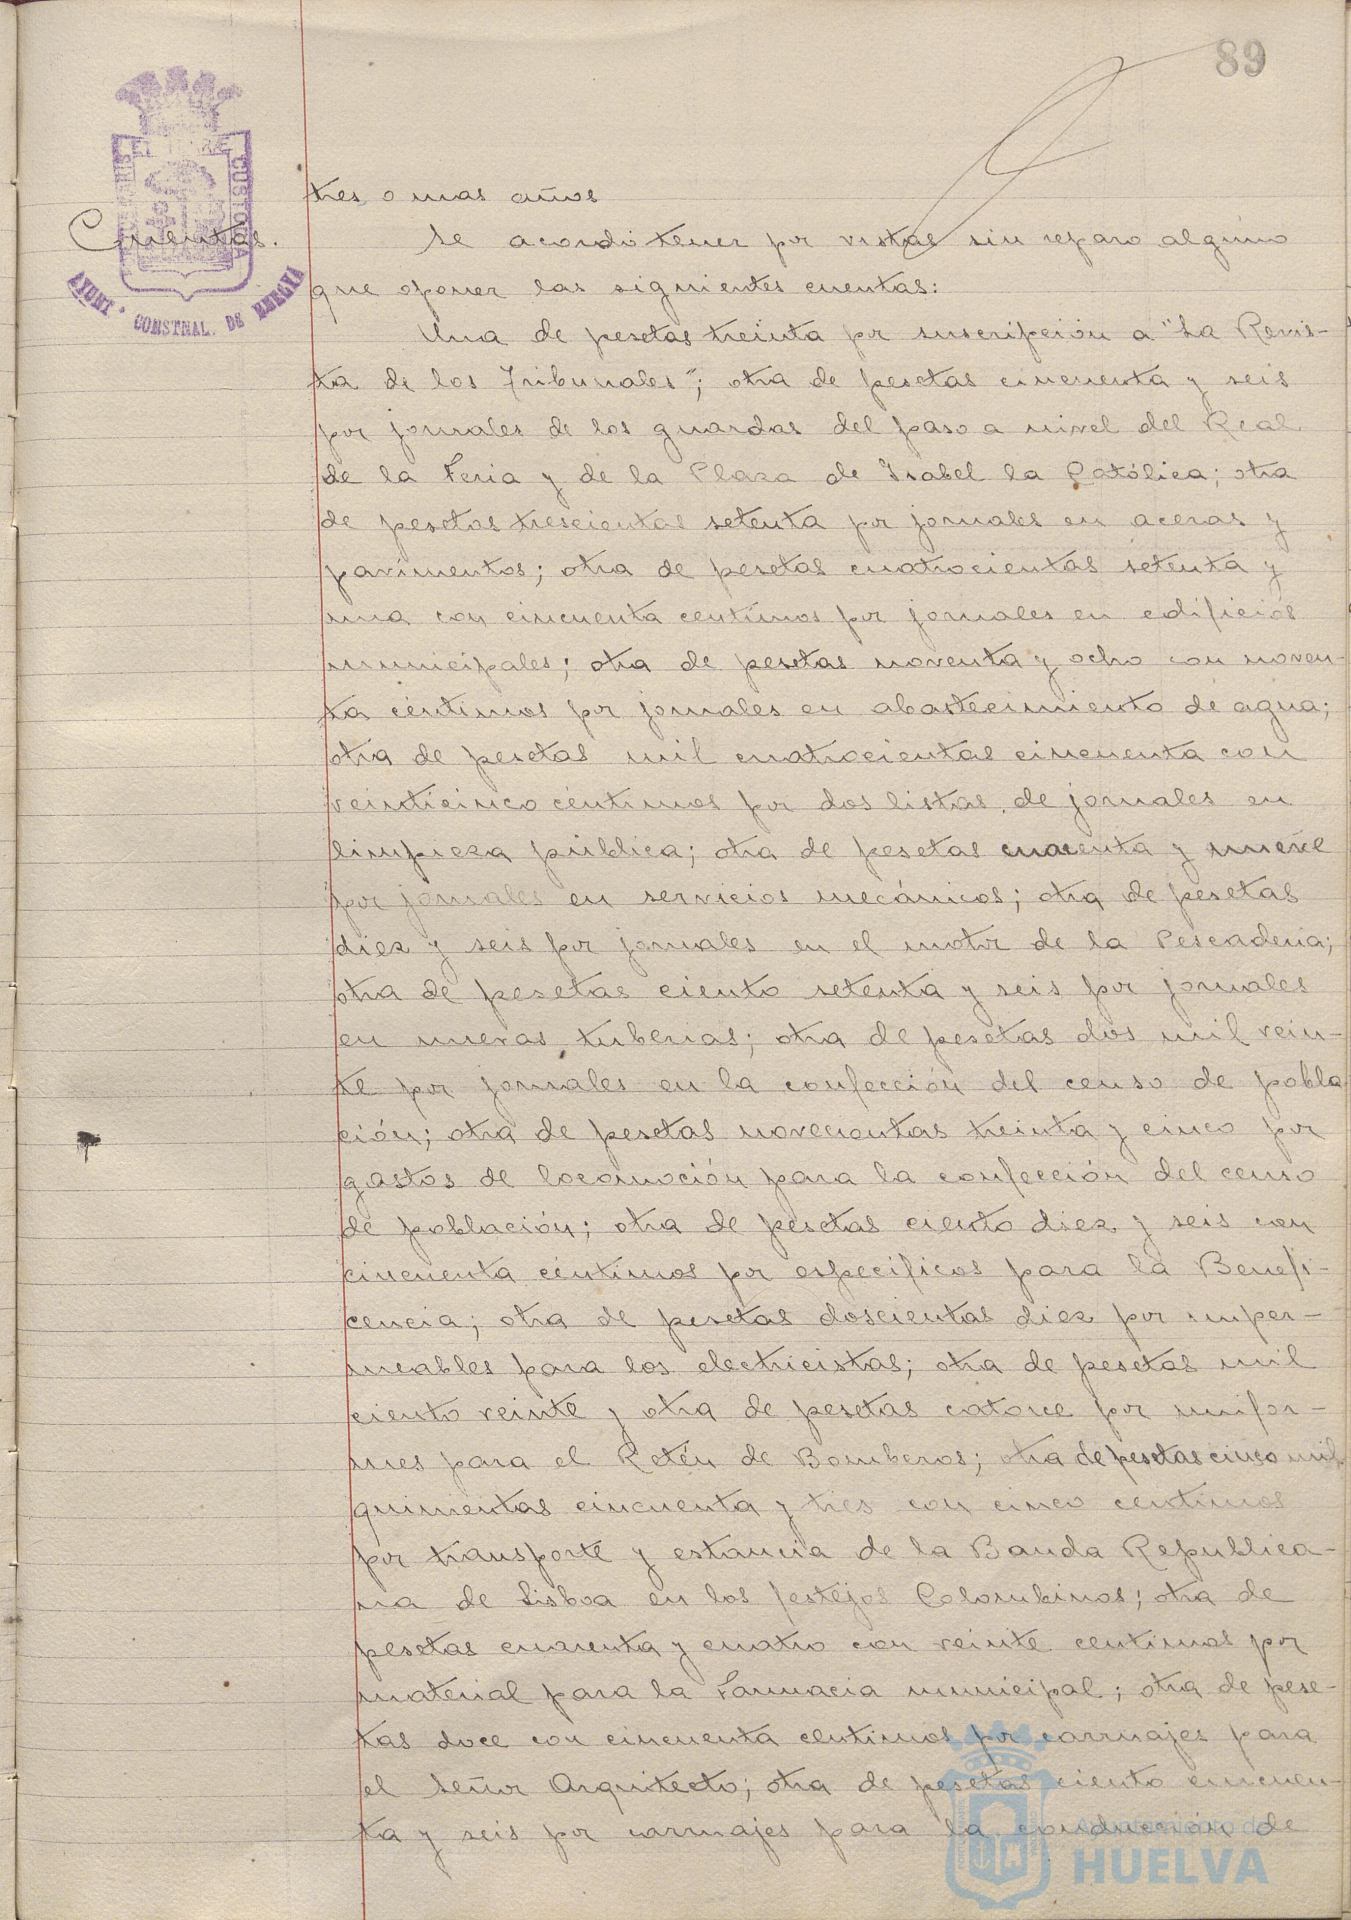 89
tres o mas años
Cuentas.
Se acordó tener por vistas sin reparo alguno
que oponer las siguientes cuentas:
Una de pesetas treinta por suscripción a "La Revis-
ta de los Tribunales"; otra de pesetas cincuenta y seis
por jornales de los guardas del paso a nivel del Real
de la Feria y de la Plaza de Isabel la Católica; otra
de pesetas trescientas setenta por jornales en aceras y
pavimentos; otra de pesetas cuatrocientas setenta y
una con cincuenta centimos por jornales en edificios
municipales; otra de pesetas noventa y ocho con noven-
ta céntimos por jornales en abastecimiento de agua;
otra de pesetas mil cuatrocientas cincuenta con
veinticinco céntimos por dos listas de jornales en
limpieza pública; otra de pesetas cuarenta y nueve
por jornales en servicios mecánicos; otra de pesetas
diez y seis por jornales en el motor de la Pescaderia;
otra de pesetas ciento setenta y seis por jornales
en nuevas tuberias; otra de pesetas dos mil vein-
te por jornales en la confección del censo de pobla
ción; otra de pesetas novecientas treinta y cinco por
gastos de locomoción para la confección del censo
de población; otra de pesetas ciento diez y seis con
cincuenta céntimos por especificos para la Benefi-
cencia; otra de pesetas doscientas diez por imper-
meables para los electricistas; otra de pesetas mil
ciento veinte y otra de pesetas catorce por unifor-
mes para el Retén de Bomberos; otra de pesetas cinco mil
quinientas cincuenta y tres con cinco centimos
por transporte y estancia de la Banda Republica-
na de Lisboa en los festejos Colombinos; otra de
pesetas cuarenta y cuatro con veinte centimos por
material para la Farmacia municipal; otra de pese-
tas doce con cincuenta centimos por carruajes para
el Señor Arquitecto; otra de pesetas ciento cincuen-
ta y seis por carruajes para la conducción de
AYUNT. CONSTNAL. DE HUELVA
CUSTODIA
Ayuntamiento de
HUELVA